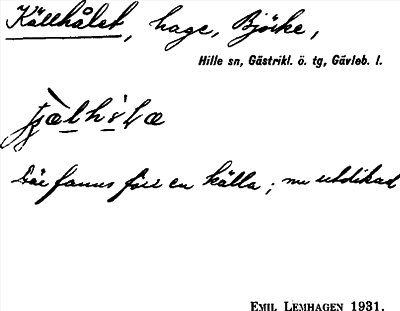 Källhålet, hage, Björke,
Hille sn, Gästrikl. ö. tg, Gävleb. l.
Där fanns förr en källa; nu utdikad
EMIL LEMHAGEN 1931.